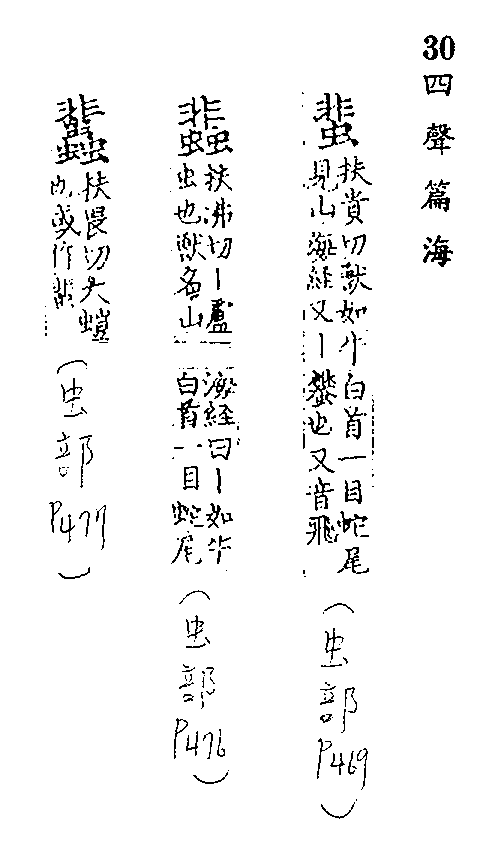 30四聲篇海
蜚扶貴切獸如牛白首一目蛇尾
見山海經又丨蠜也又音飛
(虫部P469)
𧕿扶沸切丨蠦
虫也獸名山
海経曰丨如牛
白首一目蛇尾
(虫部P476)
扶畏切大螘
也或作蜚
(虫部P477)